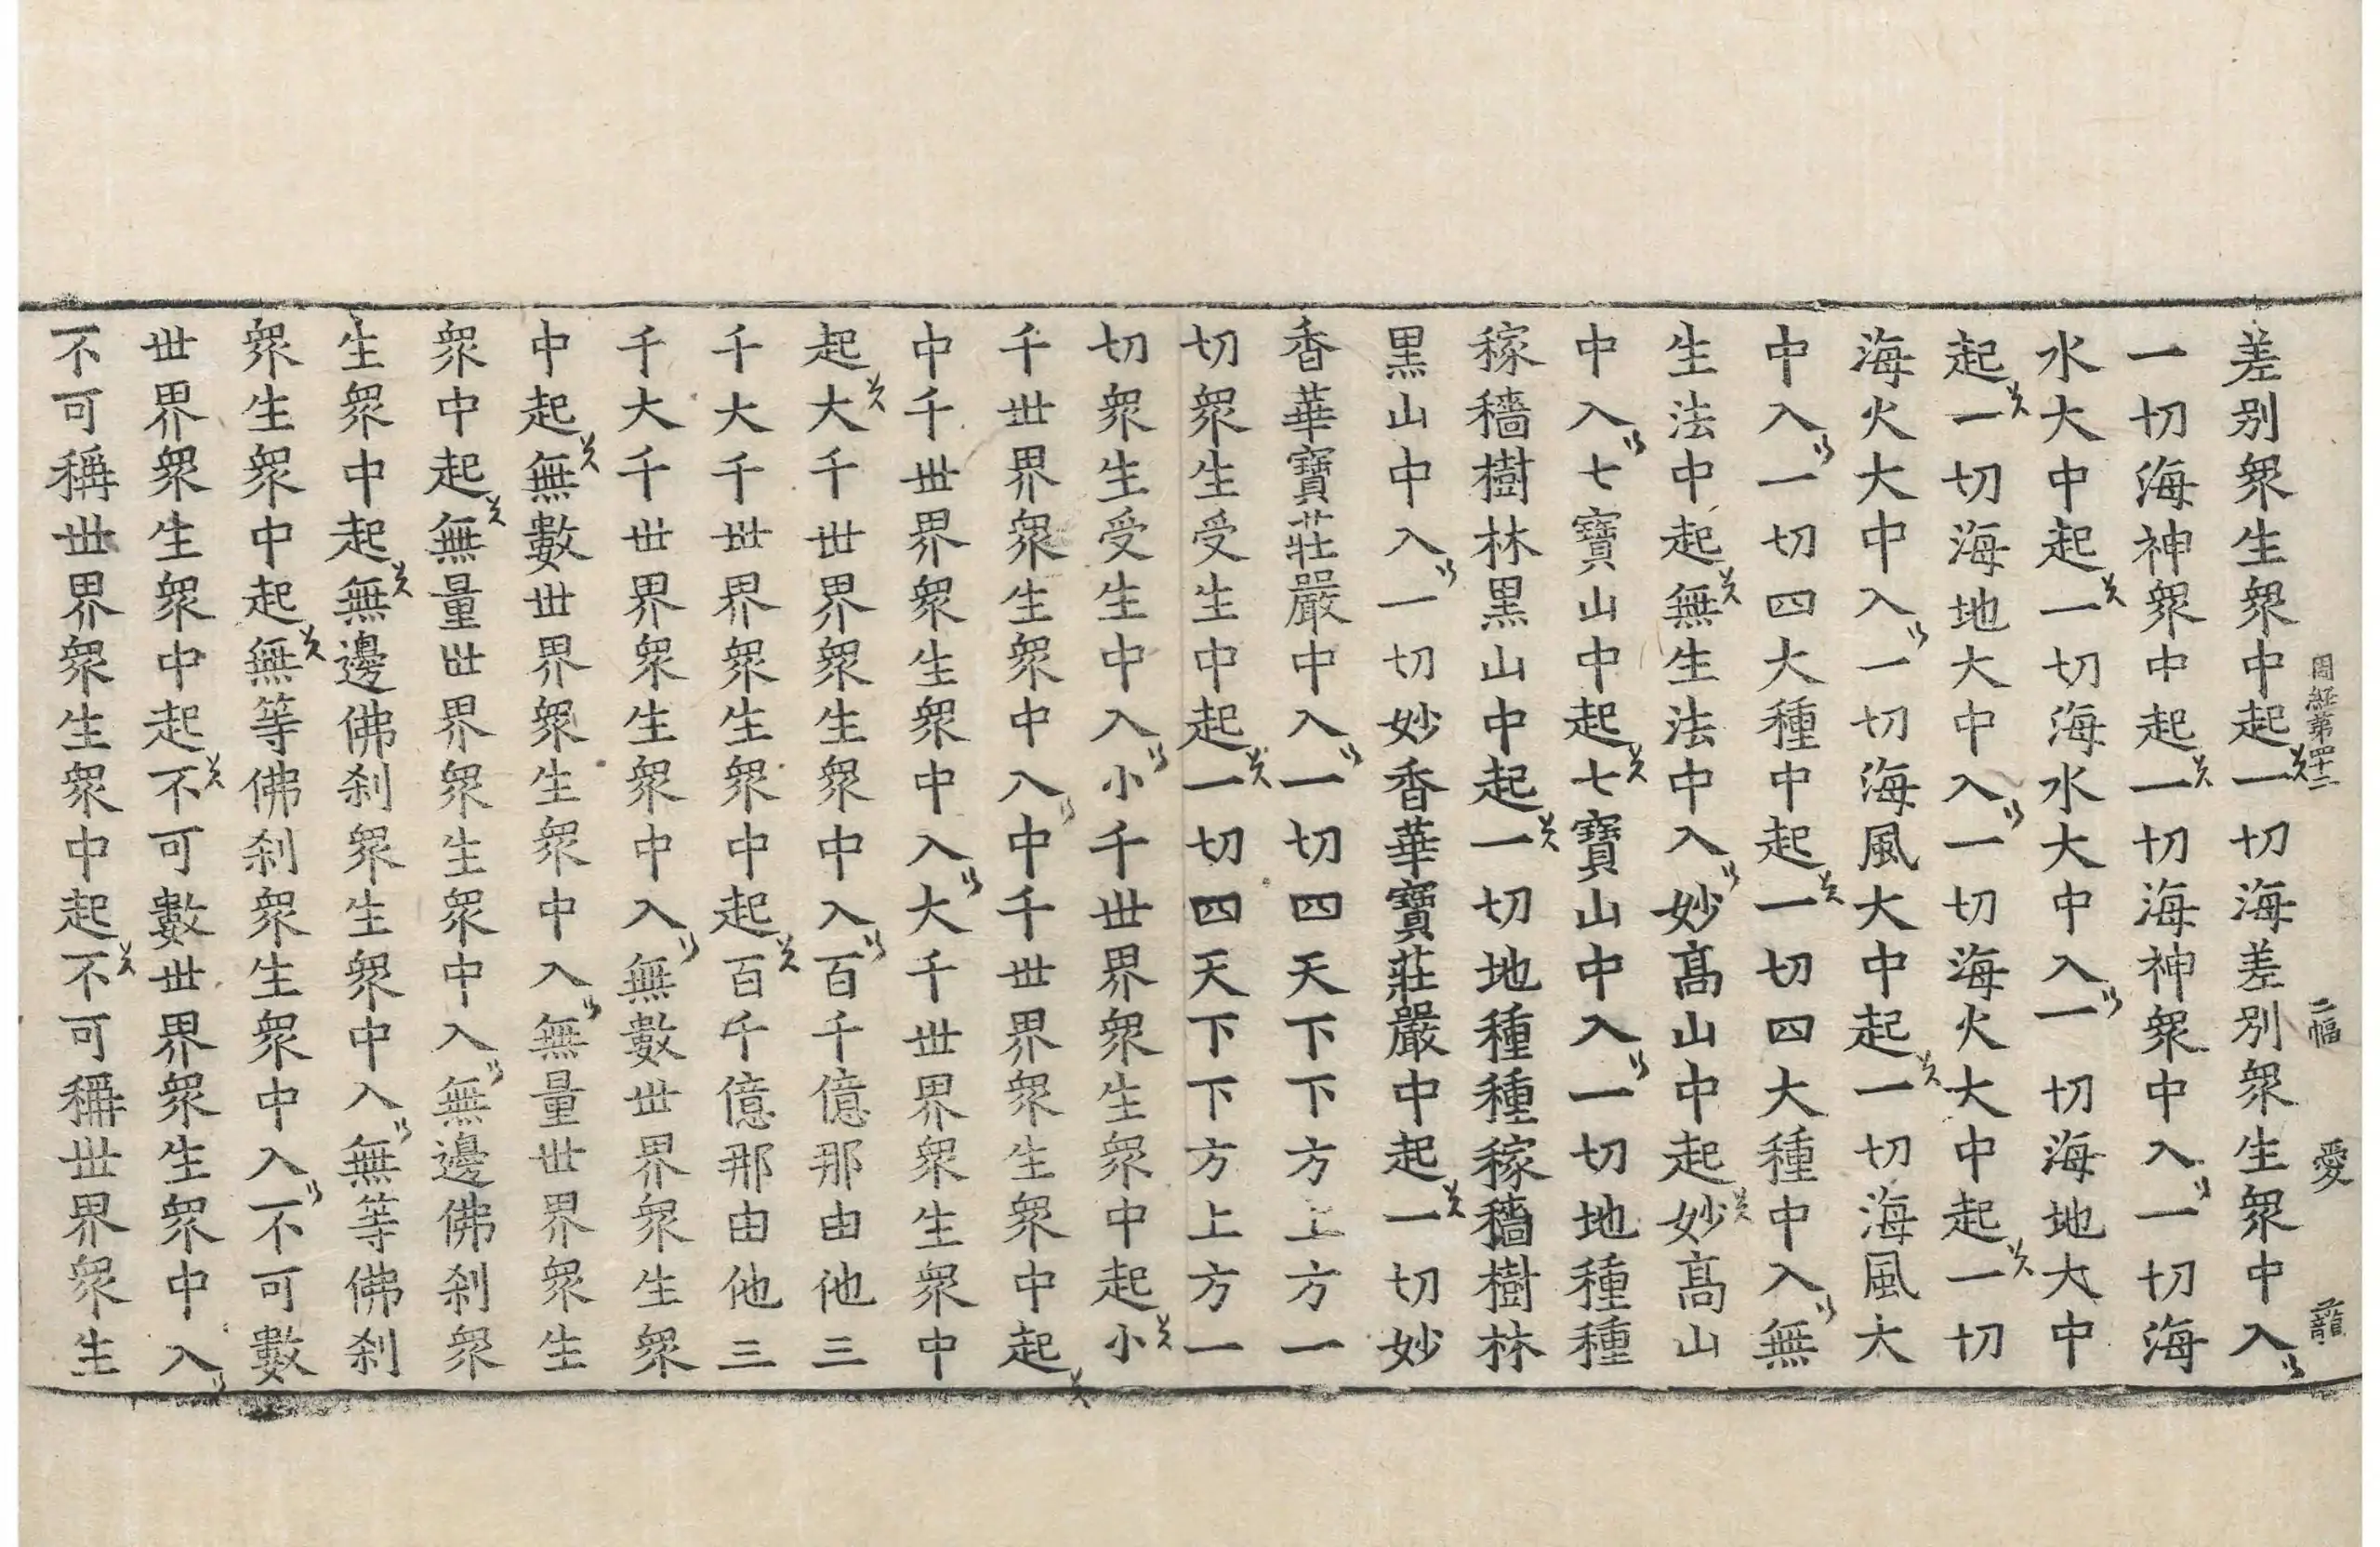 周經第四十二 二幅 愛
差別衆生衆中起一切海差別衆生衆中入
一切海神衆中起一切海神衆中入一切海
水大中起一切海水大中入一切海地大中
起一切海地大中入一切海火大中起一切
海火大中入一切海風大中起一切海風大
中入一切四大種中起一切四大種中入無
生法中起無生法中入妙髙山中起妙髙山
中入七寶山中起七寶山中入一切地種種
稼穡樹林黒山中起一切地種種稼穡樹林
黒山中入一切妙香華寶莊嚴中起一切妙
香華寶莊嚴中入一切四天下下方上方一
切衆生受生中起一切四天下下方上方一
切衆生受生中入小千世界衆生衆中起小
千世界衆生衆中入中千世界衆生衆中起
中千世界衆生衆中入大千世界衆生衆中
起大千世界衆生衆中入百千億那由他三
千大千世界衆生衆中起百千億那由他三
千大千世界衆生衆中入無數世界衆生衆
中起無數世界衆生衆中入無量世界衆生
衆中起無量世界衆生衆中入無邊佛刹衆
生衆中起無邊佛刹衆生衆中入無等佛刹
衆生衆中起無等佛刹衆生衆中入不可數
世界衆生衆中起不可數世界衆生衆中入
不可稱世界衆生衆中起不可稱世界衆生